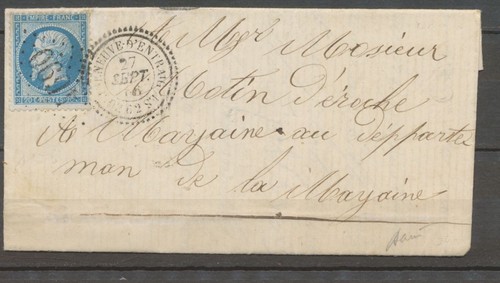 EMPIRE FRANC
27
SEPT.
A Mgr Mosieur
Cotin déroche
A Mayaine au dépparte
man de la Mayaine